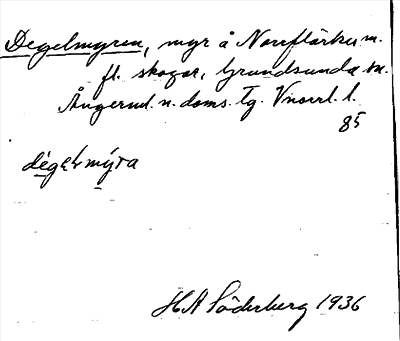 Degelmyren, myr å Norrflärke m.
fl. skogar, Grundsunda sn.
Ångerml. n. doms. Tg. Vnorrl. l.
85
degelmýra
HA Söderberg 1936